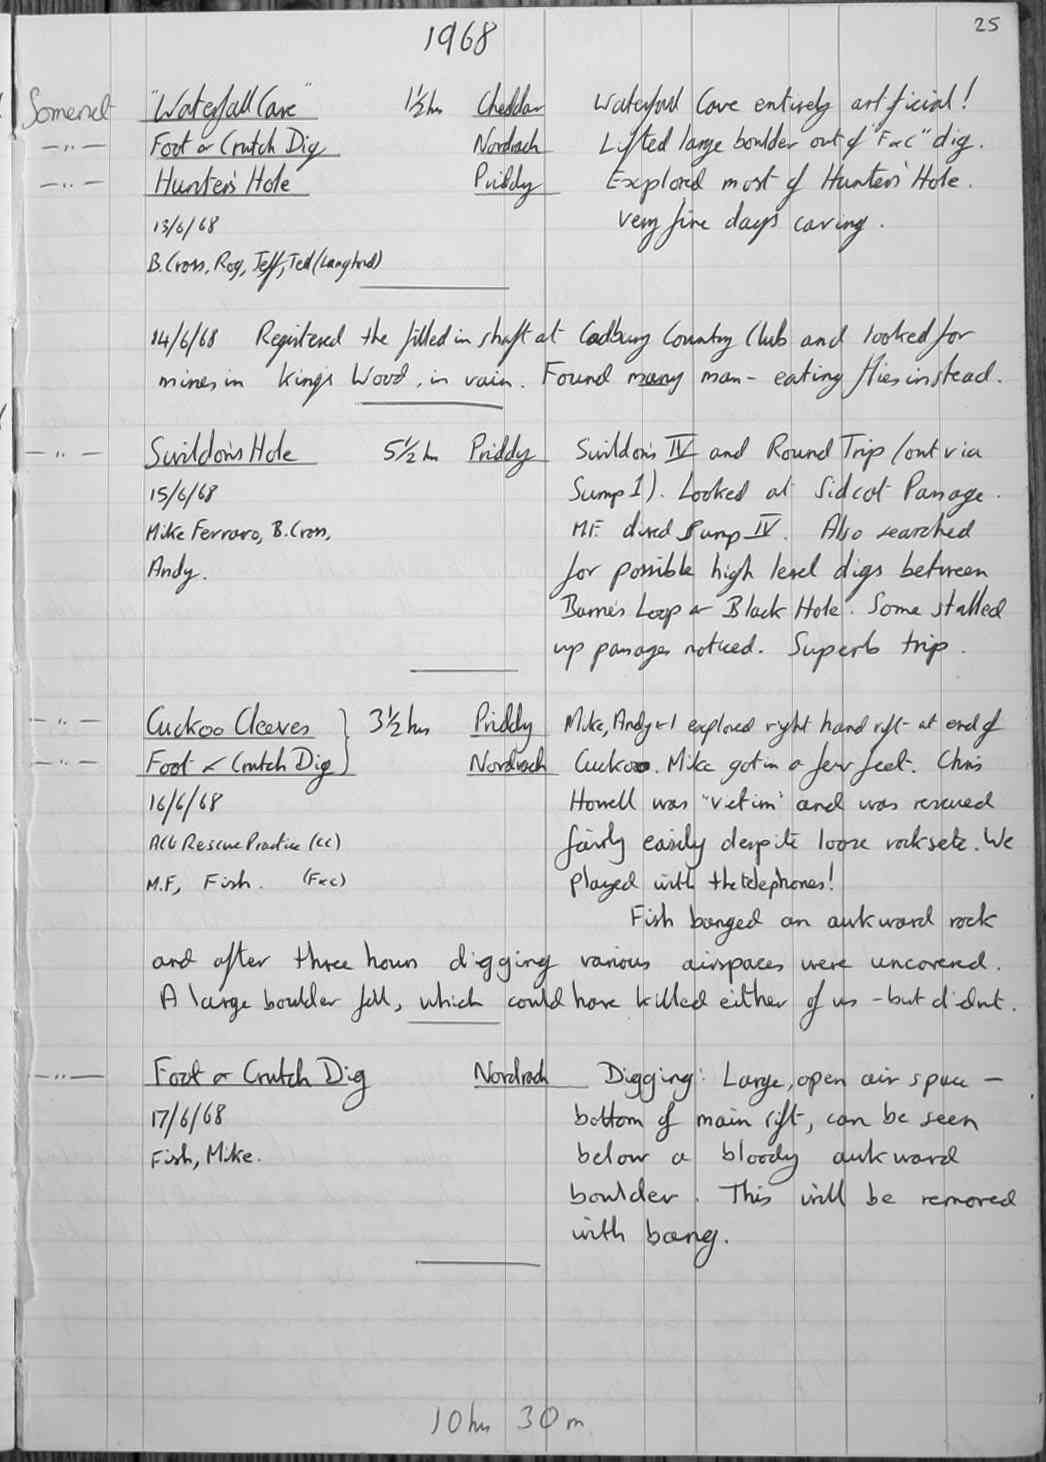 25
1968
Somerset "Waterfall Cave" 1½ hrs Cheddar Waterfall Cave entirely artificial!
—〃— Foot & Crutch Dig Nordrach Lifted large boulder out of "F&C" dig.
—〃— Hunter's Hole Priddy Explored most of Hunter's Hole.
13/6/68 Very fine days caving.
B. Cross, Rog, Jeff, Ted (Langford)
14/6/68 Registered the filled in shaft at Cadbury Country Club and looked for
mines in King's Wood, in vain. Found many man-eating flies instead.
—〃— Swildon's Hole 5½ hrs Priddy Swildon's IV and Round Trip (out via
15/6/68 Sump 1). Looked at Sidcot Passage.
Mike Ferraro, B. Cross, M.F. dived Sump IV. Also searched
Andy. for possible high level digs between
Barnes Loop & Black Hole. Some stalled
up passages noticed. Superb trip.
—〃— Cuckoo Cleeves } 3½ hrs Priddy Mike, Andy & I explored right hand rift at end of
—〃— Foot & Crutch Dig Nordrach Cuckoo. Mike got in a few feet. Chris
16/6/68 Howell was "victim" and was rescued
ACG Rescue Practice (CC) fairly easily despite loose rocks etc. We
M.F, Fish. (F&C) played with the telephones!
Fish banged an awkward rock
and after three hours digging various airspaces were uncovered.
A large boulder fell, which could have killed either of us - but didnt.
—〃— Foot & Crutch Dig Nordrach Digging: Large, open air space —
17/6/68 bottom of main rift, can be seen
Fish, Mike. below a bloody awkward
boulder. This will be removed
with bang.
10 hrs 30 m